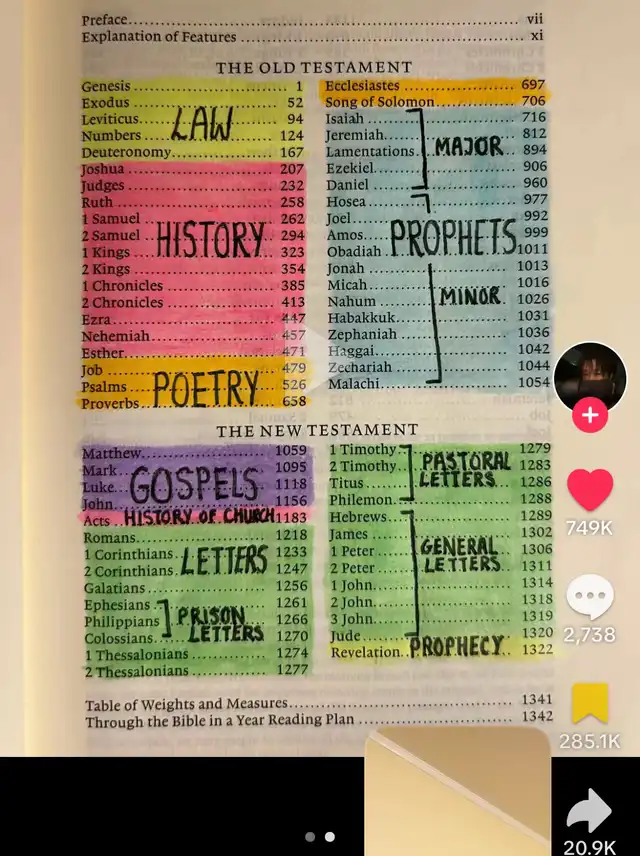 Preface vii
Explanation of Features xi
THE OLD TESTAMENT
Genesis 1
Exodus 52
Leviticus 94
Numbers 124
Deuteronomy 167
LAW
Joshua 207
Judges 232
Ruth 258
1 Samuel 262
2 Samuel 294
1 Kings 323
2 Kings 354
1 Chronicles 385
2 Chronicles 413
Ezra 447
Nehemiah 457
Esther 471
HISTORY
Job 479
Psalms 526
Proverbs 658
POETRY
Ecclesiastes 697
Song of Solomon 706
Isaiah 716
Jeremiah 812
Lamentations 894
Ezekiel 906
Daniel 960
MAJOR
Hosea 977
Joel 992
Amos 999
Obadiah 1011
Jonah 1013
Micah 1016
Nahum 1026
Habakkuk 1031
Zephaniah 1036
Haggai 1042
Zechariah 1044
Malachi 1054
PROPHETS
MINOR
THE NEW TESTAMENT
Matthew 1059
Mark 1095
Luke 1118
John 1156
GOSPELS
Acts HISTORY OF CHURCH 1183
Romans 1218
1 Corinthians 1233
2 Corinthians 1247
LETTERS
Galatians 1256
Ephesians 1261
Philippians 1266
Colossians 1270
PRISON
LETTERS
1 Thessalonians 1274
2 Thessalonians 1277
1 Timothy 1279
2 Timothy 1283
Titus 1286
Philemon 1288
PASTORAL
LETTERS
Hebrews 1289
James 1302
1 Peter 1306
2 Peter 1311
1 John 1314
2 John 1318
3 John 1319
Jude 1320
GENERAL
LETTERS
Revelation PROPHECY 1322
Table of Weights and Measures 1341
Through the Bible in a Year Reading Plan 1342
749K
2,738
285.1K
20.9K